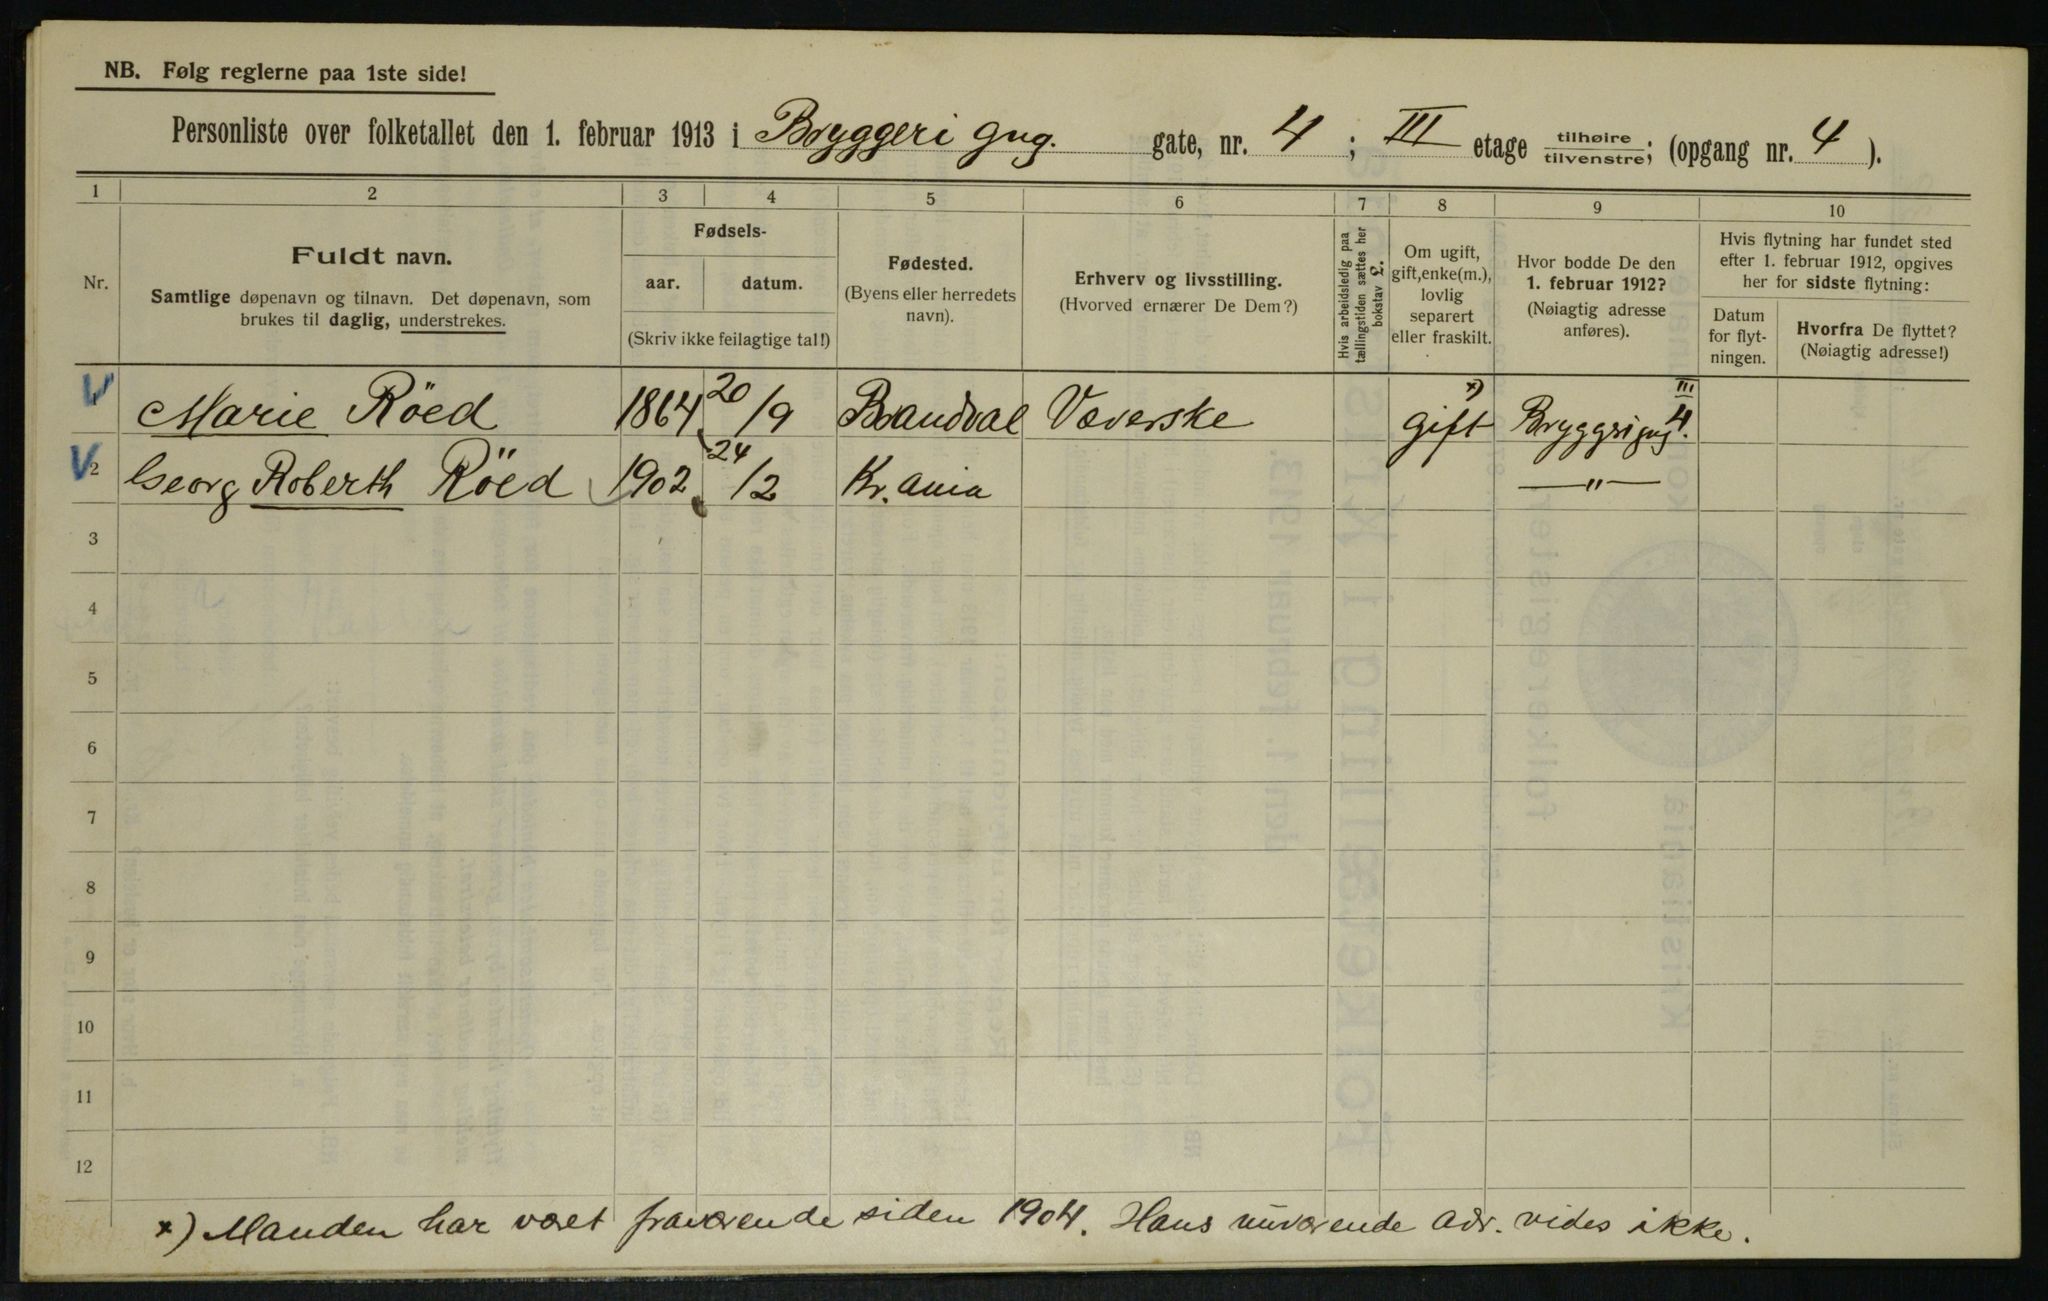 NB. Følg reglerne paa 1ste side!
Personliste over folketallet den 1. februar 1913 i Bryggeri gng. gate, nr. 4; III etage tilhøire tilvenstre; (opgang nr. 4).
1 2 3 4 5 6 7 8 9 10
Nr.
Fuldt navn.
Samtlige døpenavn og tilnavn. Det døpenavn, som
brukes til daglig, understrekes.
Fødsels-
aar. datum.
(Skriv ikke feilagtige tal!)
Fødested.
(Byens eller herredets
navn).
Erhverv og livsstilling.
(Hvorved ernærer De Dem?)
Hvis arbeidsledig paa
tællingstiden sættes her
bokstav £.
Om ugift,
gift, enke(m.),
lovlig
separert
eller fraskilt.
Hvor bodde De den
1. februar 1912?
(Nøiagtig adresse
anføres).
Hvis flytning har fundet sted
efter 1. februar 1912, opgives
her for sidste flytning:
Datum
for flyt-
ningen.
Hvorfra De flyttet?
(Nøiagtig adresse!)
1 Marie Röed 1864 20/9 Brandval Væverske x) gift Bryggrigng 4. III
2 Georg Roberth Röed 1902 24/2 Kr.ania —"—
3
4
5
6
7
8
9
10
11
12
x) Manden har væet fraværende siden 1904. Hans nuværende adr. vides ikke.